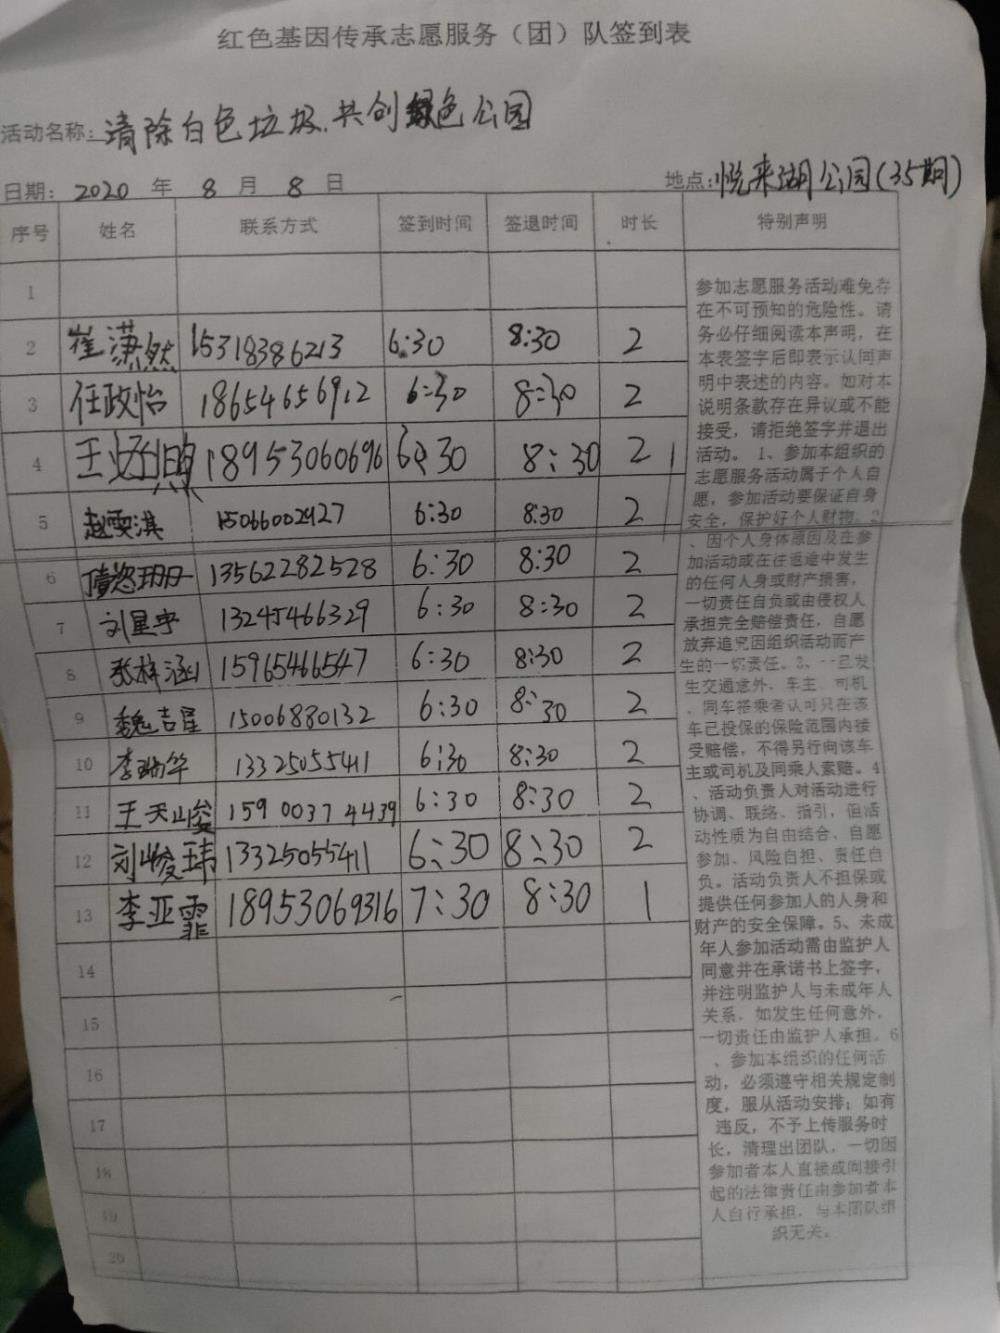 红色基因传承志愿服务（团）队签到表
活动名称：清除白色垃圾.共创绿色公园
日期：2020 年 8 月 8 日 地点：悦来湖公园(35期)
序号 姓名 联系方式 签到时间 签退时间 时长 特别声明
1
2 崔潇然 15318386213 6:30 8:30 2
3 任政怡 18654656912 6:30 8:30 2
4 王 18953060696 6:30 8:30 2
5 赵雯淇 15066002927 6:30 8:30 2
6 13562282528 6:30 8:30 2
7 刘星宇 13245466329 6:30 8:30 2
8 张梓涵 15965466547 6:30 8:30 2
9 魏吉星 15006880132 6:30 8:30 2
10 李瑞华 13325055411 6:30 8:30 2
11 王天山峻 15900374439 6:30 8:30 2
12 刘峻玮 13325055411 6:30 8:30 2
13 李亚霏 18953069316 7:30 8:30 1
14
15
16
17
18
19
20
参加志愿服务活动难免存
在不可预知的危险性。请
务必仔细阅读本声明，在
本表签字后即表示认同声
明中表述的内容。如对本
说明条款存在异议或不能
接受，请拒绝签字并退出
活动。1、参加本组织的
志愿服务活动属于个人自
愿，参加活动要保证自身
安全，保护好个人财物。2
、因个人身体原因及在参
加活动或在往返途中发生
的任何人身或财产损害，
一切责任自负或由侵权人
承担完全赔偿责任，自愿
放弃追究因组织活动而产
生的一切责任。3、一旦发
生交通意外，车主、司机
、同车搭乘者认可只在该
车已投保的保险范围内接
受赔偿，不得另行向该车
主或司机及同乘人索赔。4
、活动负责人对活动进行
协调、联络、指引，但活
动性质为自由结合、自愿
参加、风险自担、责任自
负。活动负责人不担保或
提供任何参加人的人身和
财产的安全保障。5、未成
年人参加活动需由监护人
同意并在承诺书上签字，
并注明监护人与未成年人
关系，如发生任何意外，
一切责任由监护人承担。6
、参加本组织的任何活
动，必须遵守相关规定制
度，服从活动安排；如有
违反，不予上传服务时
长，清理出团队，一切因
参加者本人直接或间接引
起的法律责任由参加者本
人自行承担，与本团队组
织无关。